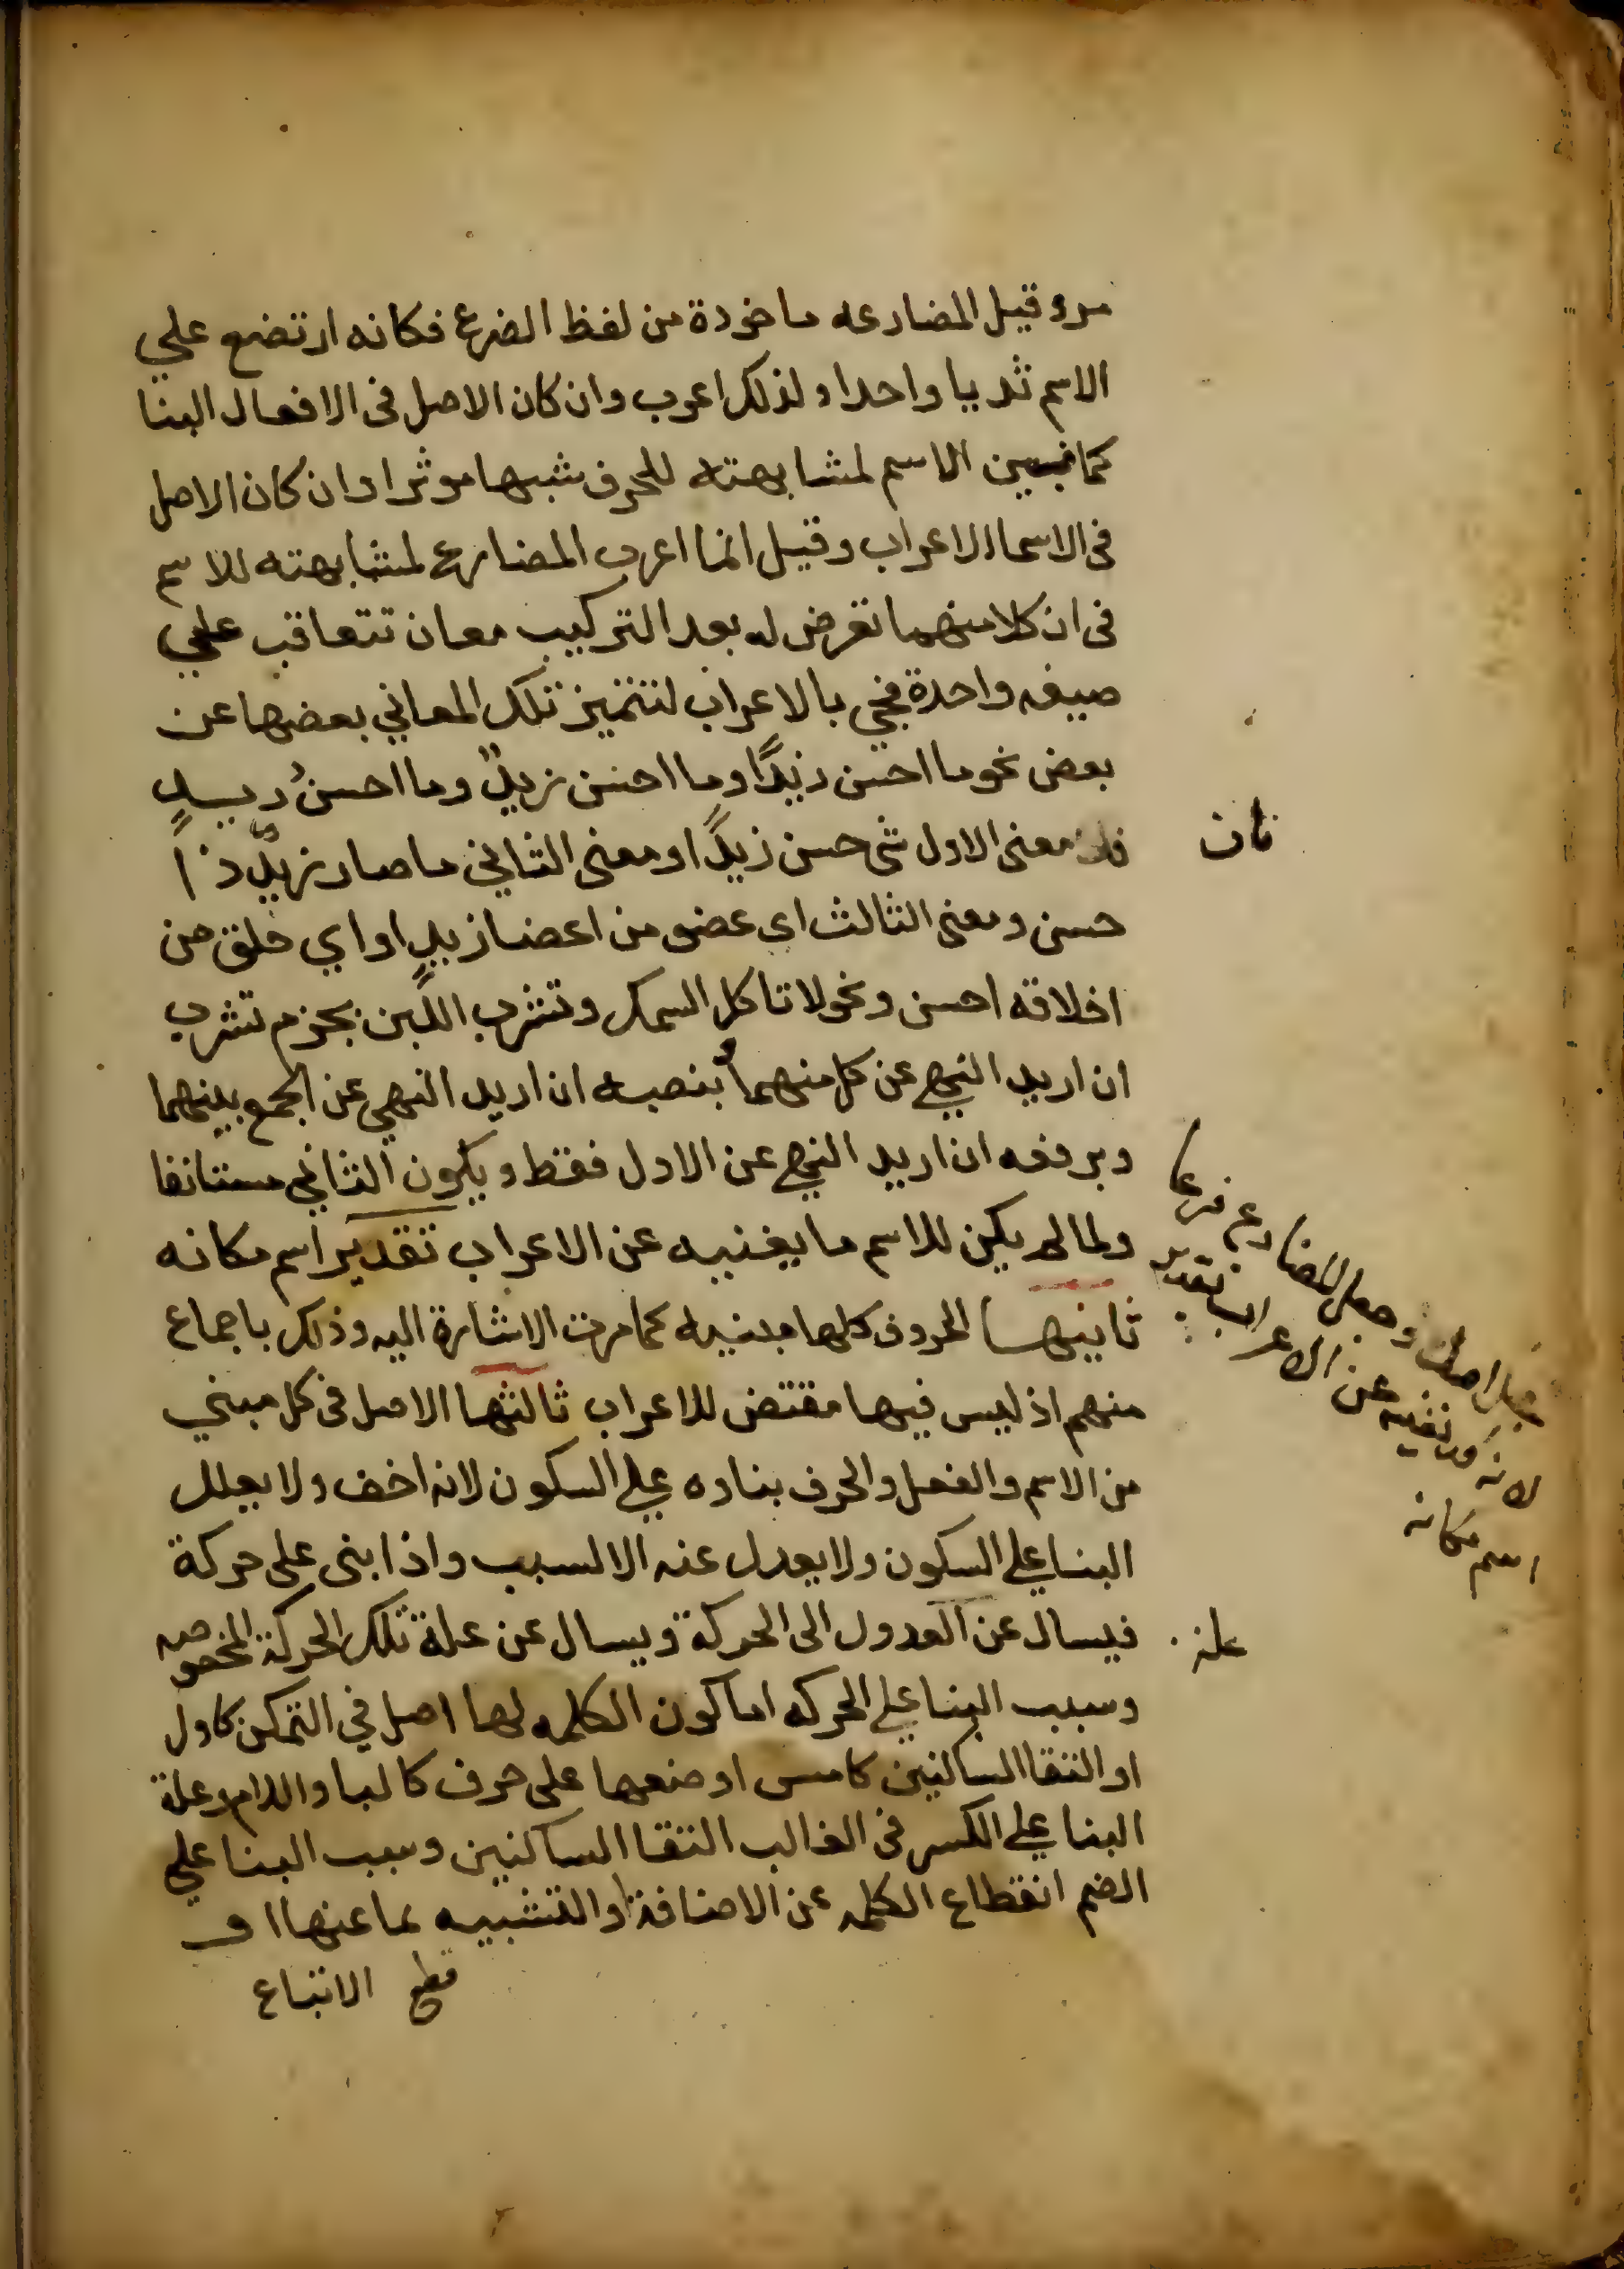 مر وقيل المضارعه ماخوذة من لفظ الضرع فكانه ارتضع علي
الاسم ثديا واحدا ولذلك اعرب وان كان الاصل فى الافعال البنا
كما بني الاسم لمشابهته للحرف شبها موثرا وان كان الاصل
فى الاسما الاعراب وقيل انما اعرب المضارع لمشابهته للاسم
فى ان كلا منهما تعرض له بعد التركيب معان تتعاقب علي
صيغه واحدة فجي بالاعراب لتتميز تلك المعاني بعضها عن
بعض نحو ما احسن زيدًا وما احسن زيدٌ وما احسنُ زيدٍ
فان معنى الاول شى حسن زيدًا ومعنى الثاني ما صار زيدٌ ذا
حسن ومعنى الثالث اى عضو من اعضا زيدٍ او اي خلق من
اخلاقه احسن ونحو لا تاكل السمك وتشرب اللبن بجزم تشرب
ان اريد النهي عن كل منهما وبنصبه ان اريد النهي عن الجمع بينهما
وبرفعه ان اريد النهي عن الاول فقط ويكون الثاني مستانفا
ولما لم يكن للاسم ما يغنيه عن الاعراب تقدير اسم مكانه
ثانيها الحروف كلها مبنيه كما مرت الاشارة اليه وذلك باجماع
منهم اذ ليس فيها مقتض للاعراب ثالثها الاصل فى كل مبني
من الاسم والفعل والحرف بناوه علي السكون لانه اخف ولا يعلل
البنا علي السكون ولا يعدل عنه الا لسبب واذا بنى على حركة
فيسال عن العدول الى الحركة ويسال عن علة تلك الحركة المخصوصه
وسبب البنا علي الحركه اما كون الكلمه لها اصل في التمكن كاول
او التقا الساكنين كامس او ضعها على حرف كالبا واللام وعلة
البنا علي الكسر فى الغالب التقا الساكنين وسبب البنا علي
الضم انقطاع الكلمه عن الاضافة او التشبيه بما عنها او
قطع الاتباع
فان
جعل اصلا وجعل المضارع فرعا
لانه قد يغنيه عن الاعراب تقدير
اسم مكانه
علة